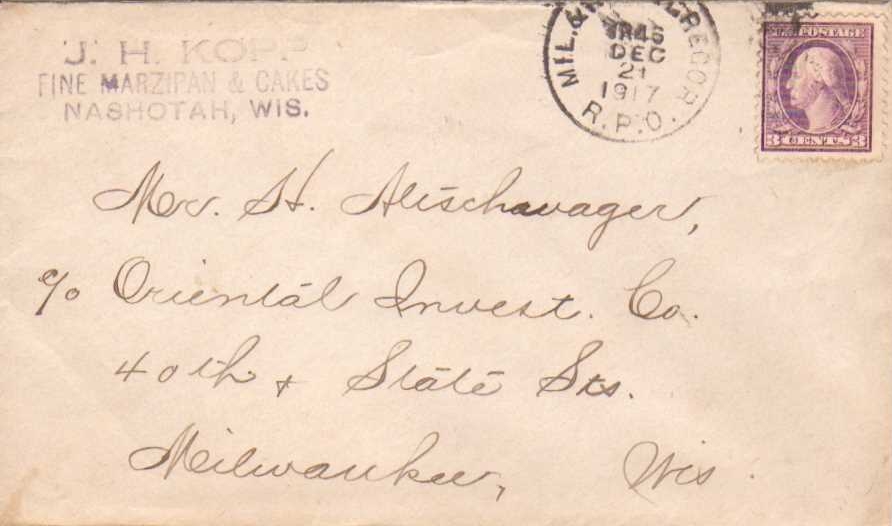 J. H. KOPP
FINE MARZIPAN & CAKES
NASHOTAH, WIS.
MIL. & GREGOR
TR46
DEC
21
1917
R.P.O.
POSTAGE
3 CENTS 3
Mr. H.
c/o Oriental Invest. Co.
40th & State Sts.
Milwaukee, Wis